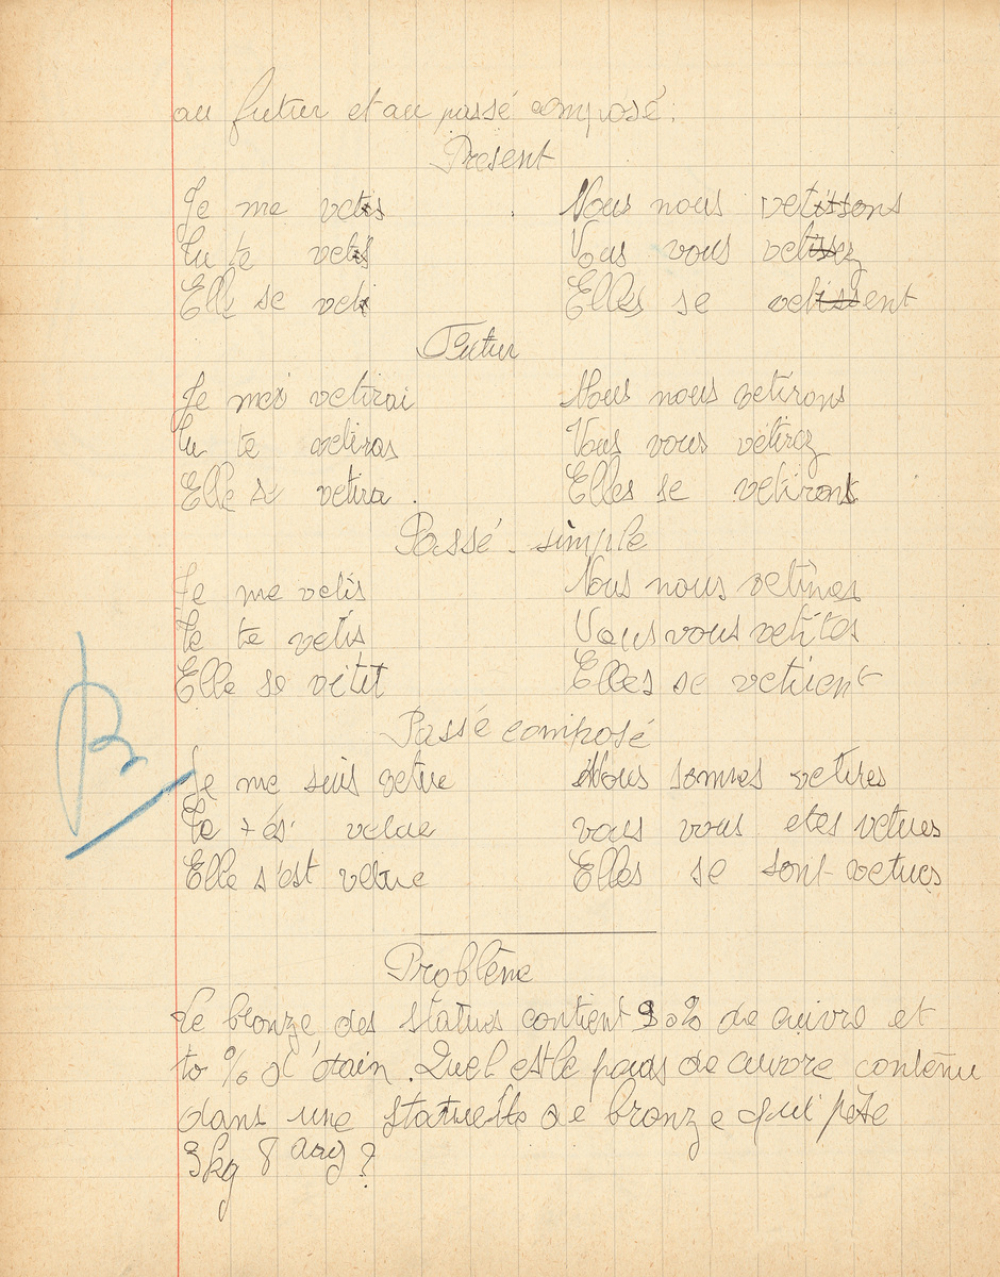 au futur et au passé composé.
Présent
Je me vetis Nous nous vetissons
Tu te vetis Vous vous vetissez
Elle se veti Elles se vetissent
Futur
Je me vetirai Nous nous vetirons
Tu te vetiras Vous vous vetirez
Elle se vetira. Elles se vetiront
Passé - simple
Je me vetis Nous nous vetîmes
Tu te vetis Vous vous vetîtes
Elle se vêtit Elles se vetirent
Passé composé
Je me suis vetue Nous sommes vetues
Tu t'és vetue vous vous etes vetues
Elle s'est vetue Elles se sont vetues
B
Problême
Le bronze des statues contient 90% de cuivre et
10 % d'étain. Quel est le poids de cuivre contenu
dans une statuette de bronze qui pèse
3kg 8